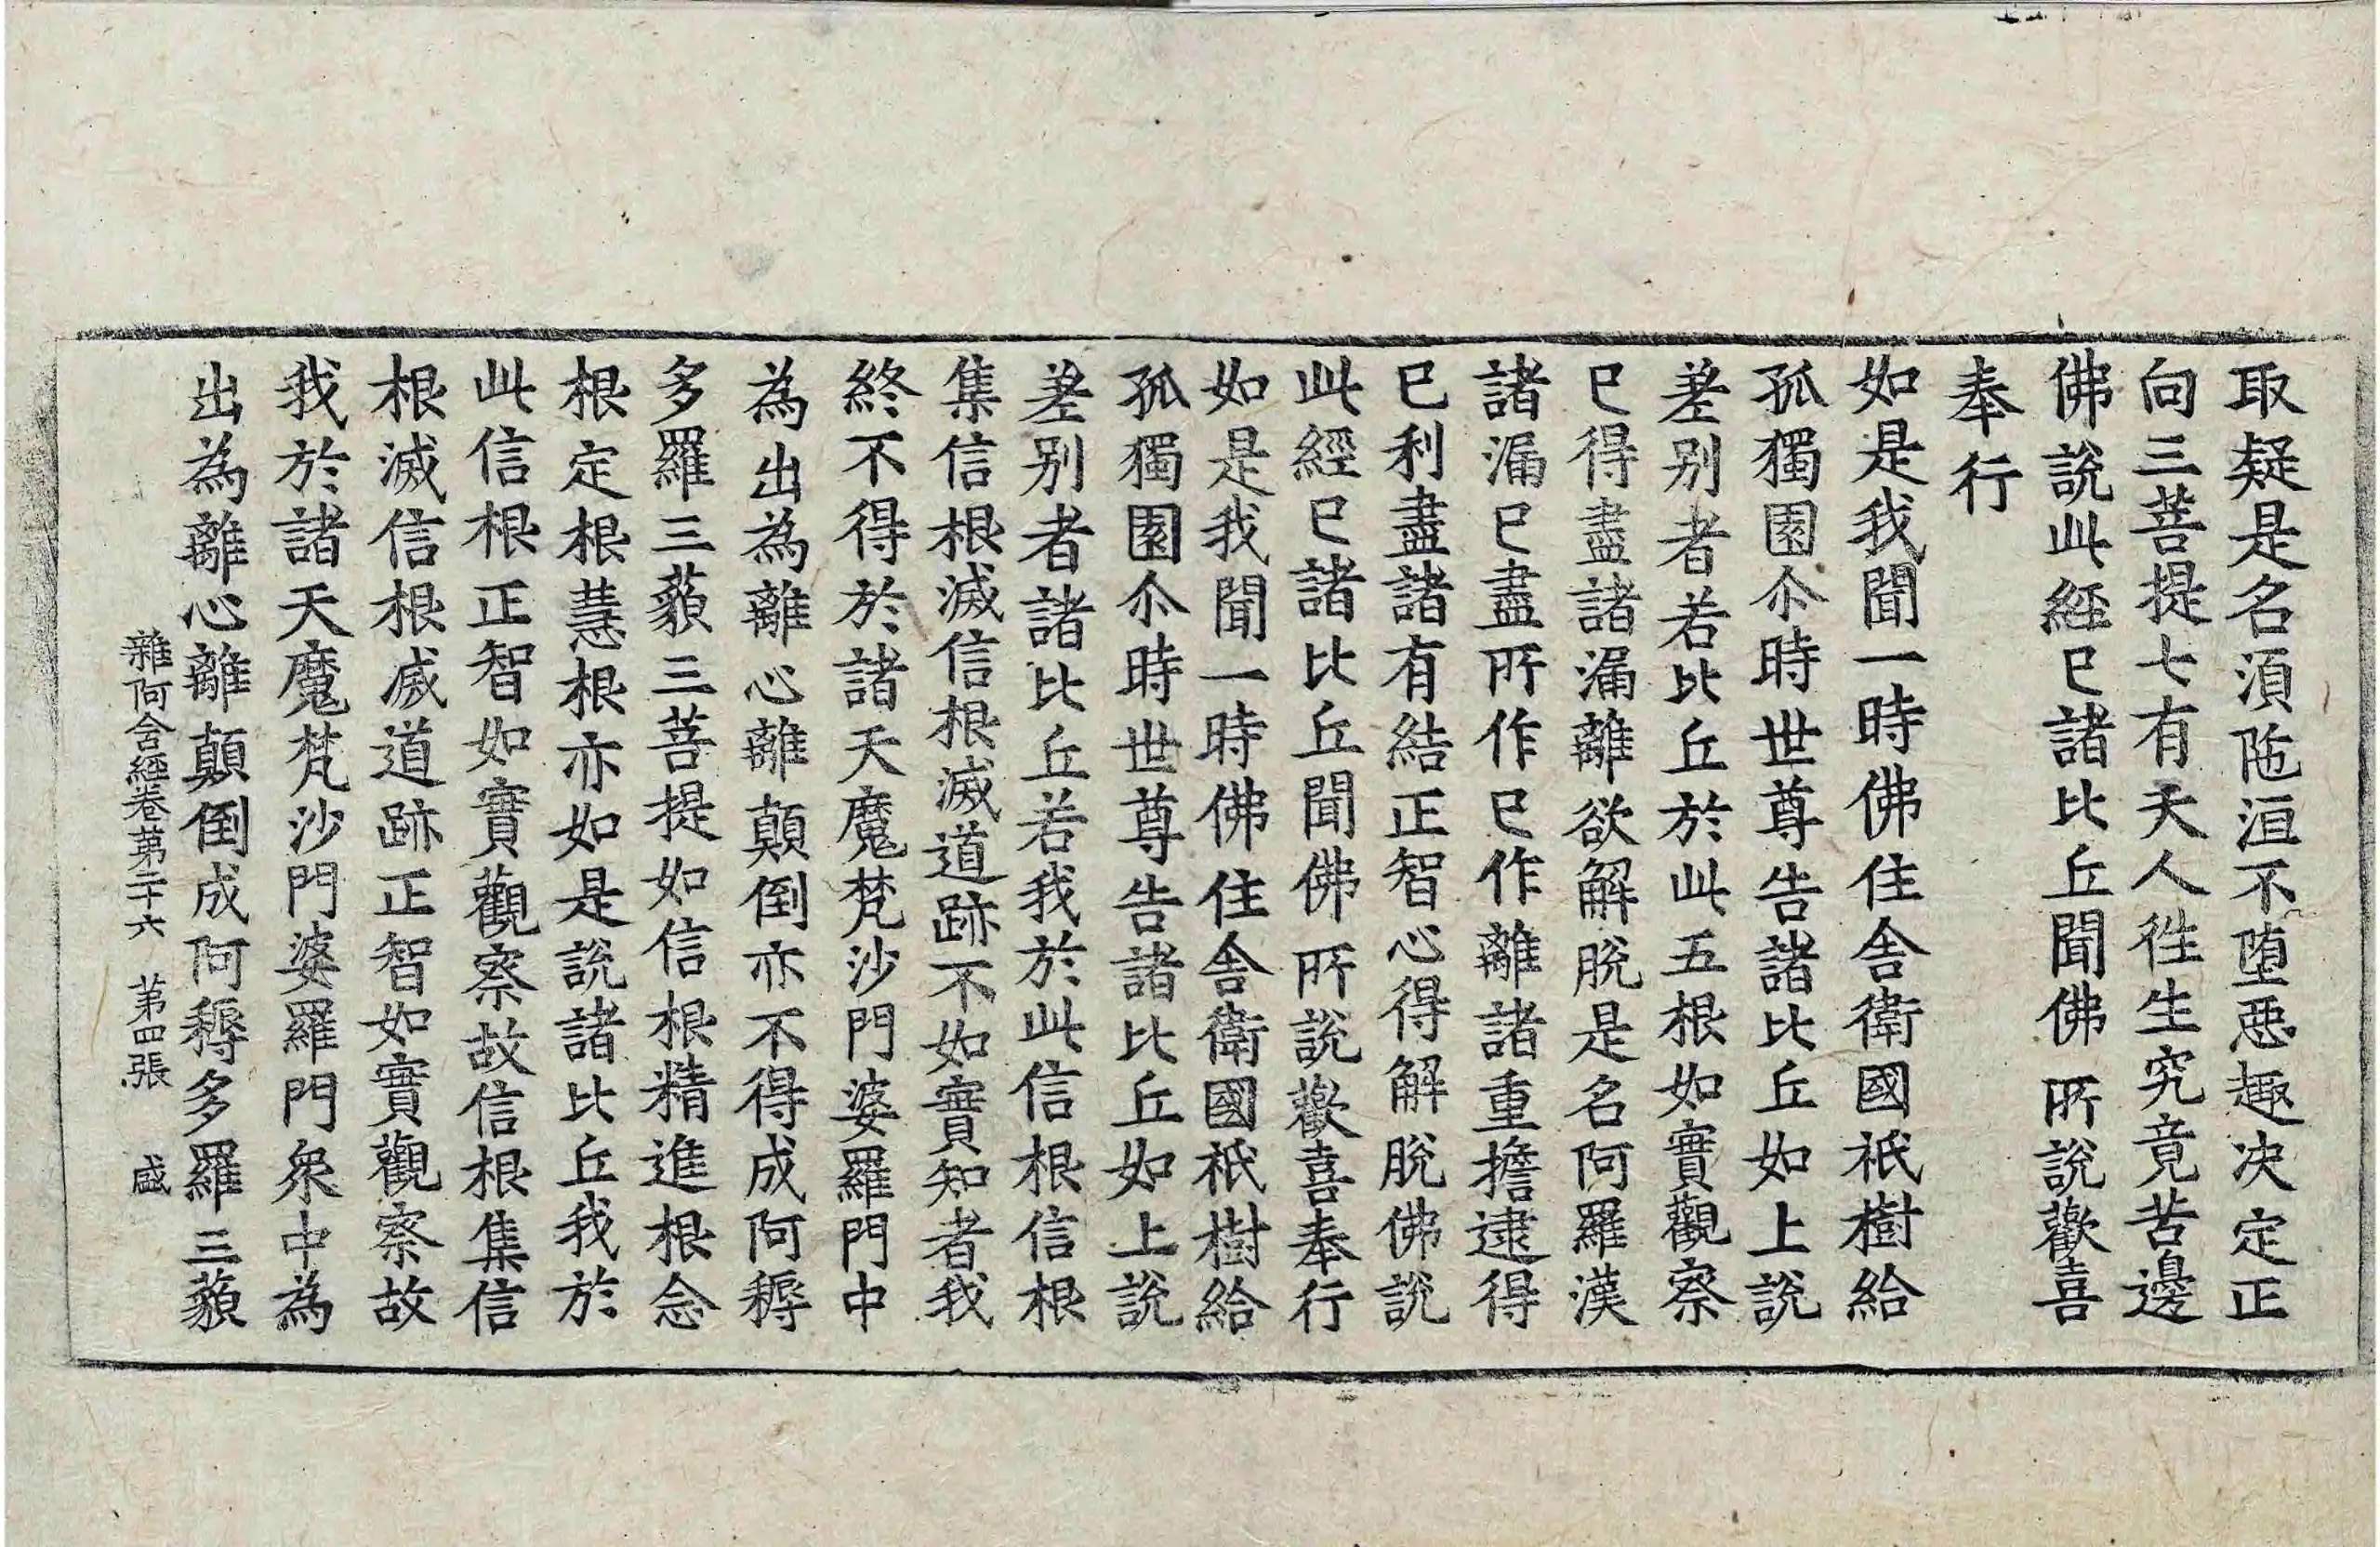 取疑是名湏陁洹不堕惡趣决定正
向三菩提七有天人徃生究竟苦邊
佛說此經已諸比丘聞佛所說歡喜
奉行
如是我聞一時佛住舍衛國祇樹給
孤獨園尒時世尊告諸比丘如上說
差别者若比丘於此五根如實觀察
已得盡諸漏離欲解脫是名阿羅漢
諸漏已盡所作已作離諸重擔逮得
已利盡諸有結正智心得解脫佛說
此經已諸比丘聞佛所說歡喜奉行
如是我聞一時佛住舍衛國祇樹給
孤獨園尒時世尊告諸比丘如上說
差别者諸比丘若我於此信根信根
集信根滅信根滅道跡不如實知者我
終不得於諸天魔梵沙門婆羅門中
為出為離心離顛倒亦不得成阿耨
多羅三藐三菩提如信根精進根念
根定根慧根亦如是說諸比丘我於
此信根正智如實觀察故信根集信
根滅信根滅道跡正智如實觀察故
我於諸天魔梵沙門婆羅門衆中為
出為離心離顛倒成阿耨多羅三藐
雜阿含經卷第二十六 第四張 盛